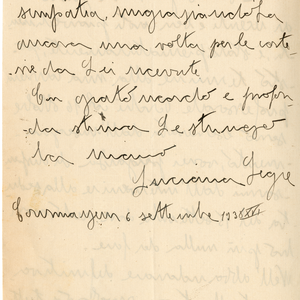 simpatia, ringraziandoLa
ancora una volta per le corte-
sie da Lei ricevute.
Con grato ricordo e profon-
da stima Le
la mano
Luciana Segre
Courmayeur 6 settembre 193